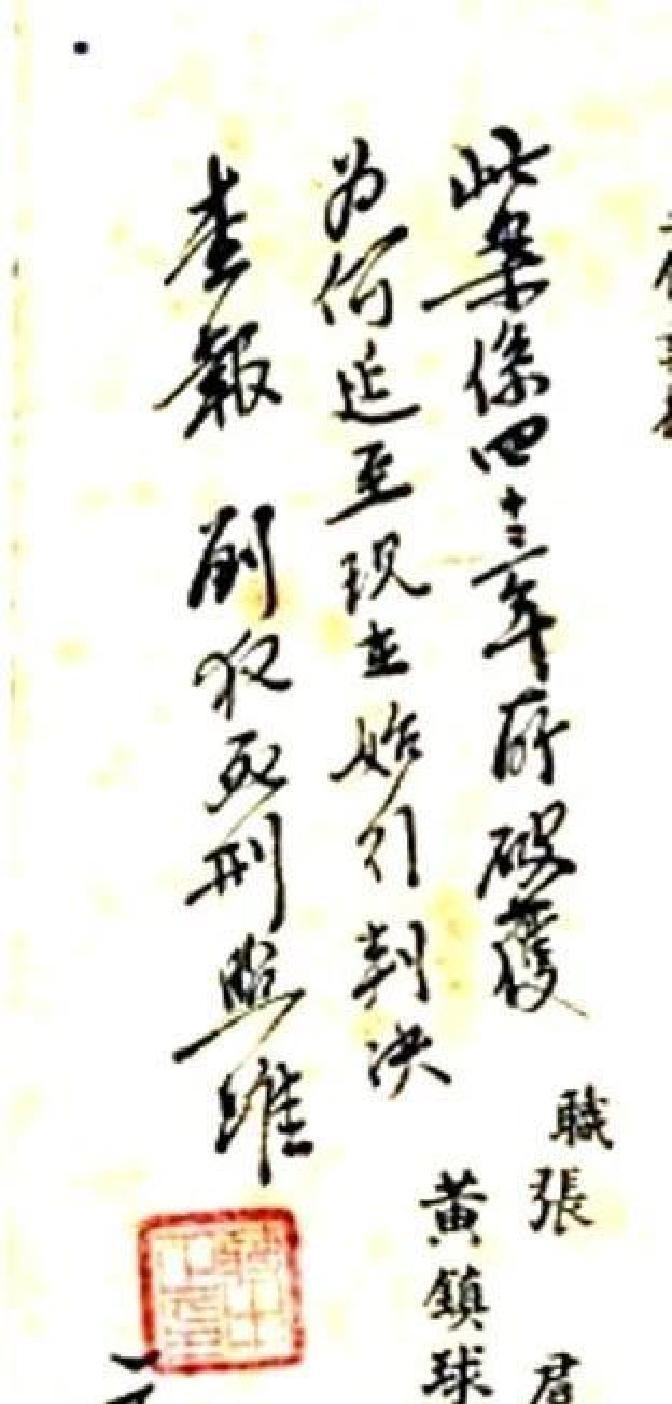 此案係四十三年所破獲
為何延至現在始引判決
查報 劉犯死刑照准
職張 君
黃鎮球